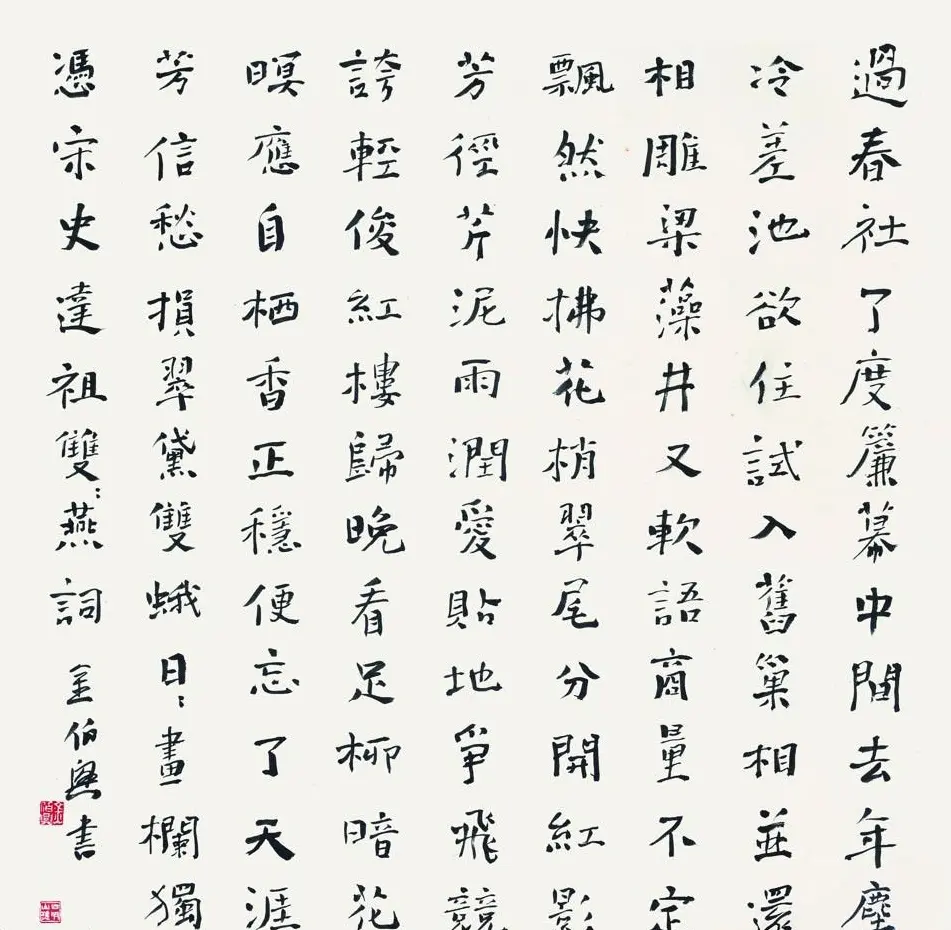 過春社了度簾幕中間去年塵
冷差池欲住試入舊巢相並還
相雕梁藻井又軟語商量不定
飄然快拂花梢翠尾分開紅影
芳徑芹泥雨潤愛貼地爭飛競
誇輕俊紅樓歸晚看足柳暗花
暝應自栖香正穩便忘了天涯
芳信愁損翠黛雙蛾日〻畫欄獨
憑宋史達祖雙〻燕詞 金伯興书